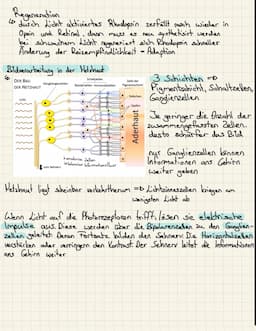 Regeneration
↳ durch Licht aktiviertes Rhodopsin zerfällt nach wieder in
Opsin und Retinal, dann muss es neu synthetisiert werden
bei schwachem Licht regeneriert sich Rhodopsin schneller
Änderung der Reizempfindlichkeit - Adaption
Bildverarbeitung in der Netzhaut
DER BAU
DER NETZHAUT
Aderhaut
3 Schichten =>
Pigmentschicht, Schaltzellen,
Ganglienzellen
Je geringer die Anzahl der
zusammengefassten Zellen
desto schärfer das Bild
nur Ganglienzellen können
Informationen ans Gehirn
weiter geben
Netzhaut liegt scheinbar verkehrtherum => Lichtsinneszellen kriegen am
wenigsten Licht ab
Wenn Licht auf die Photorezeptoren trifft, lösen sie elektrische
Impulse aus. Diese werden über die Bipolarzellen zu den Ganglien-
zellen geleitet. Deren Fortsätze bilden den Sehnerv. Die Horizontalzellen
verstärken oder verringern den Kontrast. Der Sehnerv leitet die Informationen
ans Gehirn weiter